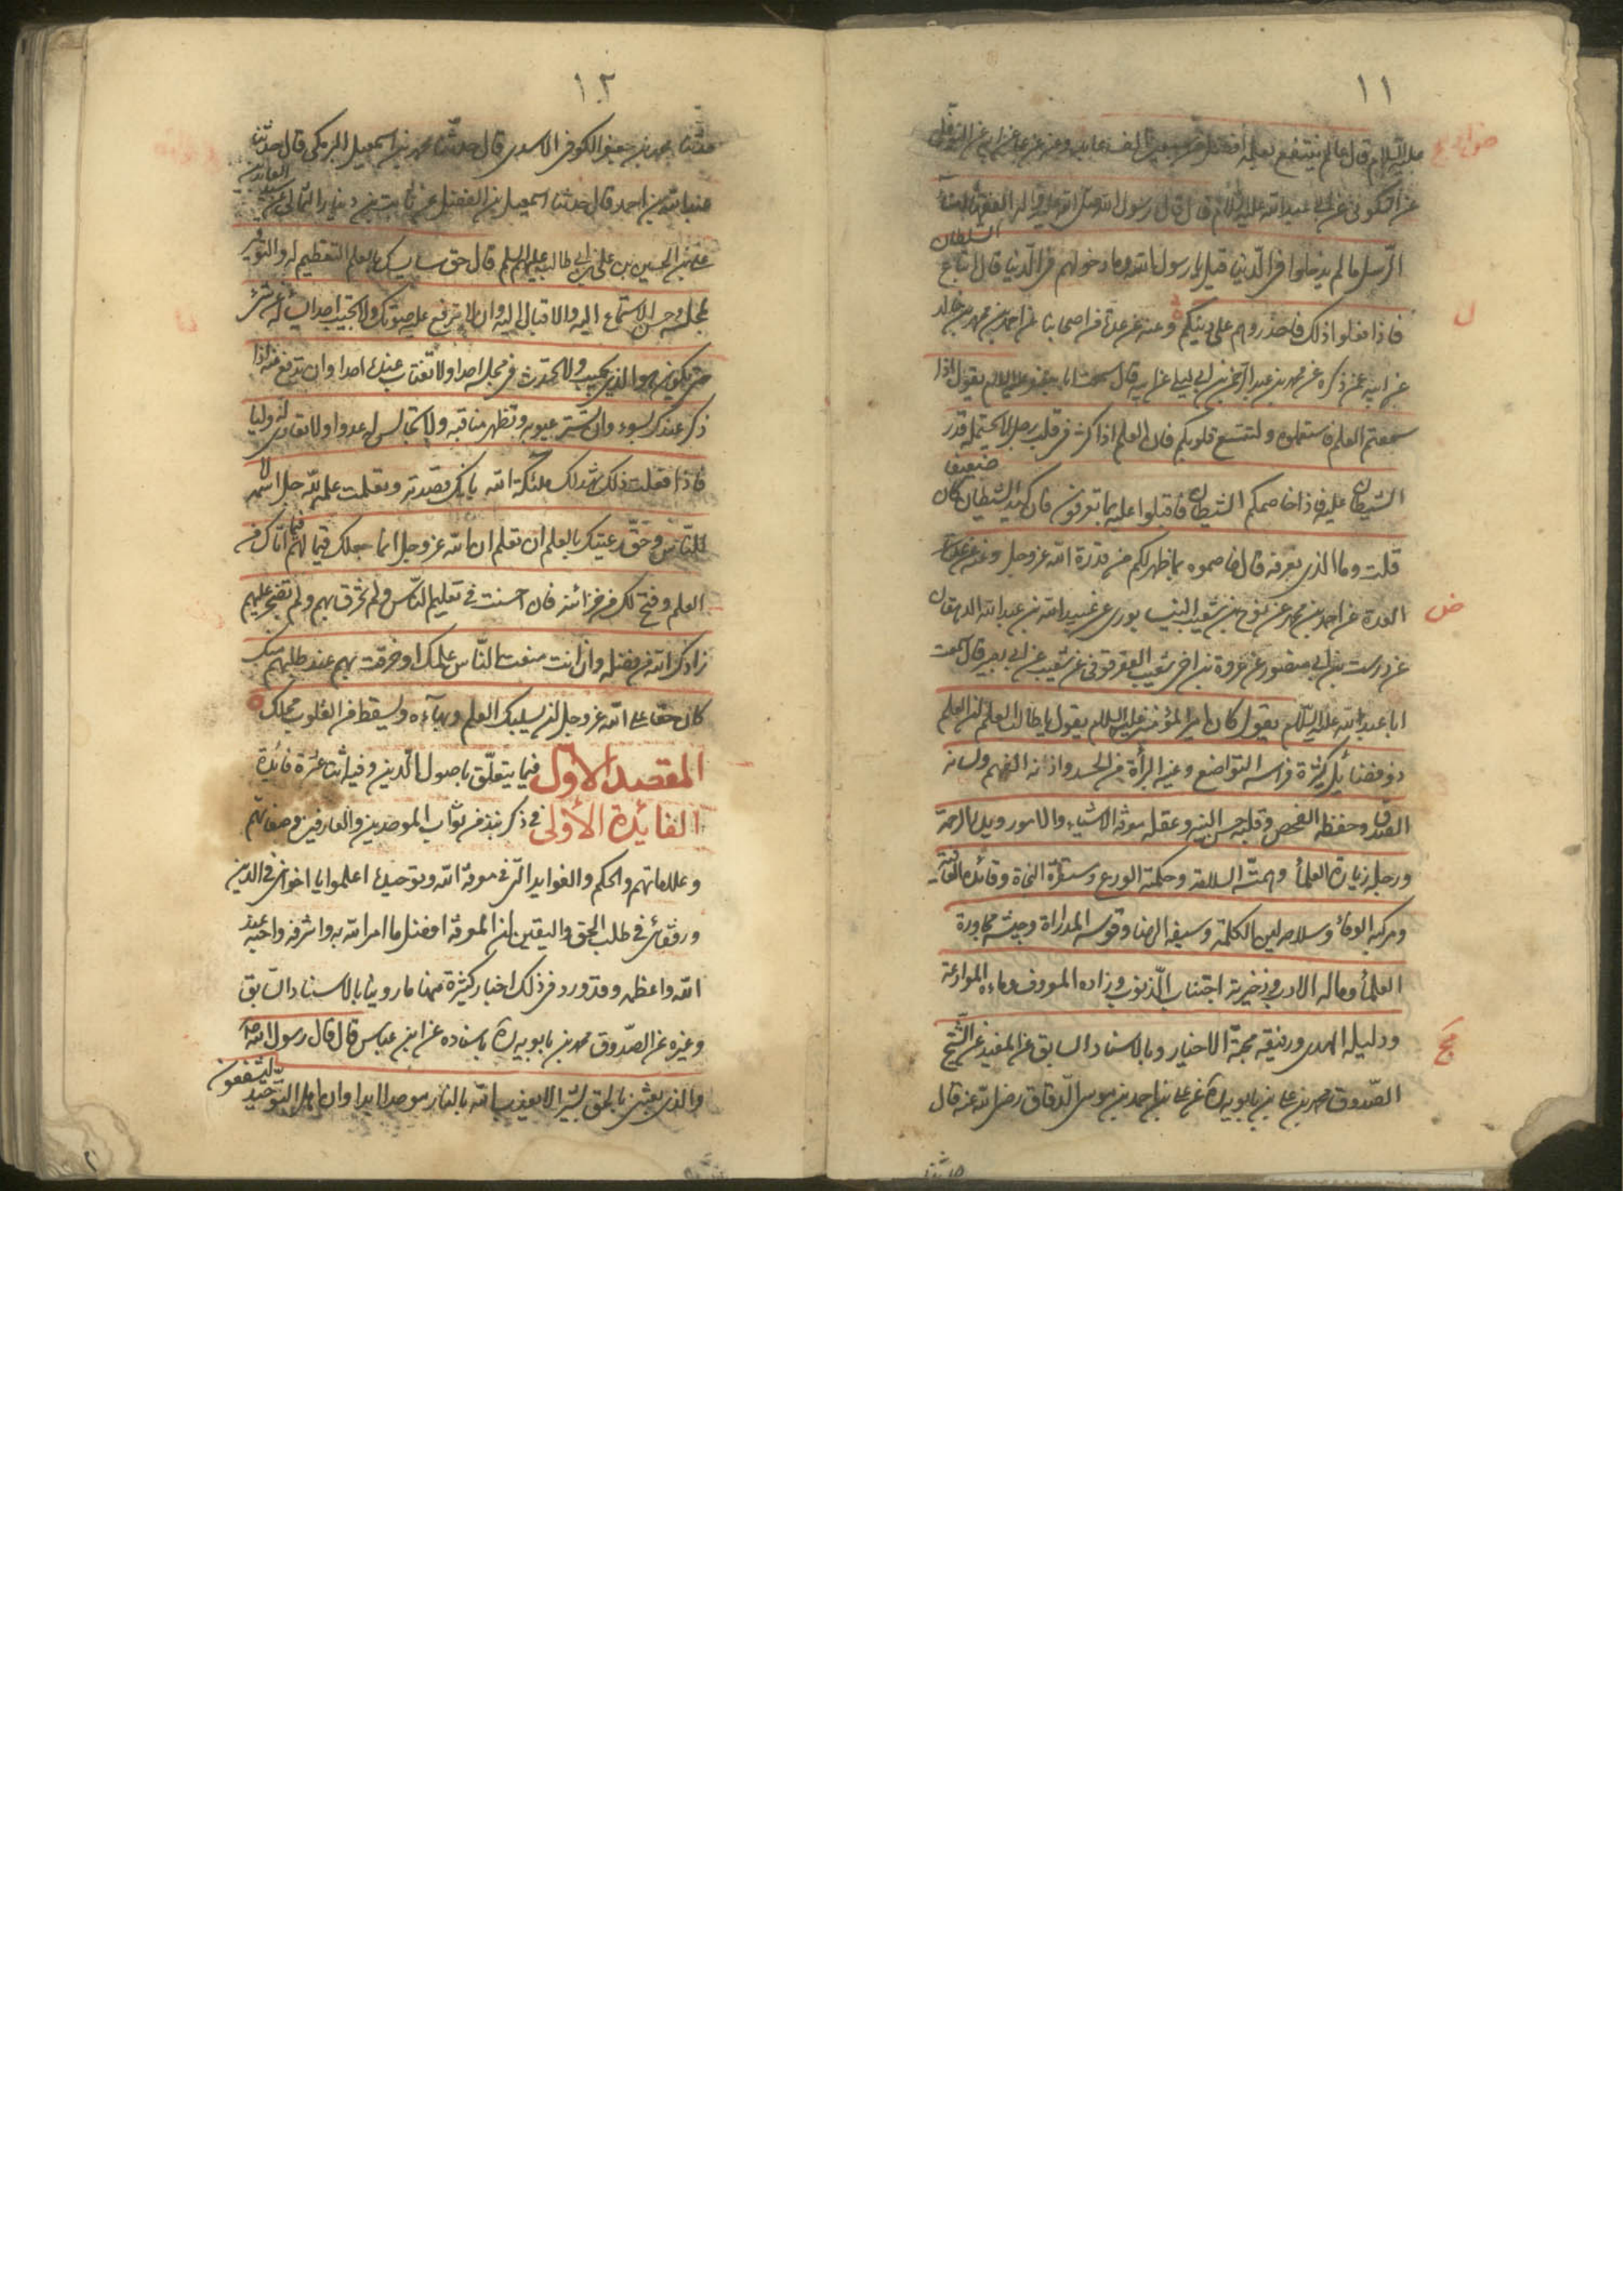 ١١
عليه السلام قال عالم ينتفع بعلمه افضل من سبعين الف عابد وعنه عن علي عن ابيه عن النوفلي
عن السكوني عن ابي عبدالله عليه السلام قال قال رسول الله صلى الله عليه واله الفقهاء امناء
الرسل ما لم يدخلوا في الدنيا قيل يا رسول الله وما دخولهم في الدنيا قال اتباع السلطان
فاذا فعلوا ذلك فاحذروهم على دينكم وعنه عن عدة من اصحابنا عن احمد بن محمد بن خالد
عن ابيه عمن ذكره عن محمد بن عبد الرحمن بن ابي ليلى عن ابيه قال سمعت ابا جعفر عليه السلام يقول اذا
سمعتم العلم فاستعملوه ولتتسع قلوبكم فان العلم اذا كثر في قلب رجل لا يحتمله قدر
الشيطان عليه فاذا خاصمكم الشيطان فاقبلوا عليه بما تعرفون فان كيد الشيطان كان ضعيفا
قلت وما الذي نعرفه قال خاصموه بما ظهر لكم من قدرة الله عز وجل وعنه عن
العدة عن احمد بن محمد عن نوح بن شعيب النيسابوري عن عبيد الله بن عبد الله الدهقان
عن درست بن ابي منصور عن عروة بن اخي شعيب العقرقوفي عن شعيب عن ابي بصير قال سمعت
ابا عبدالله عليه السلام يقول كان امير المؤمنين عليه السلام يقول يا طالب العلم ان العلم
ذو فضائل كثيرة فراسه التواضع وعينه البرأة من الحسد واذنه الفهم ولسانه
الصدق وحفظه الفحص وقلبه حسن النية وعقله معرفة الاشياء والامور ويده الرحمة
ورجله زيارة العلمأ وهمته السلامة وحكمته الورع ومستقره النجاة وقائده العافية
ومركبه الوفأ وسلاحه لين الكلمة وسيفه الرضا وقوسه المداراة وجيشه محاورة
العلمأ وماله الادب وذخيرته اجتناب الذنوب وزاده المعروف وماءه الموادعة
ودليله الهدى ورفيقه محبة الاخيار وبالاسناد السابق عن المفيد عن الشيخ
الصدوق محمد بن علي بن بابويه ره عن علي بن احمد بن موسى الدقاق رضي الله عنه قال
حدثنا
١٢
حدثنا محمد بن جعفر الكوفي الاسدي قال حدثنا محمد بن اسمعيل البرمكي قال حدثنا
عبدالله بن احمد قال حدثنا اسمعيل بن الفضل عن ثابت بن دينار الثمالي عن سيد العابدين
علي بن الحسين بن علي بن ابي طالب عليهم السلم قال حق سايسك بالعلم التعظيم له والتوقير
لمجلسه وحسن الاستماع اليه والاقبال اليه وان لا ترفع عليه صوتك ولا تجيب احدا يسأله عن شئ
حتى يكون هو الذي يجيب ولا تحدث في مجلسه احدا ولا تغتاب عنده احدا وان تدفع عنه اذا
ذكر عندك بسوء وان تستر عيوبه وتظهر مناقبه ولا تجالس له عدوا ولا تعادي له وليا
فاذا فعلت ذلك شهد لك ملئكة الله بانك قصدته وتعلمت علمه لله جل اسمه لا
للناس وحق رعيتك بالعلم ان تعلم ان الله عز وجل انما جعلك قيما لهم فيما اتاك من
العلم وفتح لك من خزائنه فان احسنت في تعليم الناس ولم تخرق بهم ولم تضجر عليهم
زادك الله من فضله وان انت منعت الناس علمك او خرقت بهم عند طلبهم منك
كان حقا على الله عز وجل ان يسلبك العلم وبهآءه ويسقط من القلوب محلك
المقصد الاول فيما يتعلق باصول الدين وفيه اثنتا عشرة فائدة
الفايدة الأولى في ذكر نبذ من ثواب الموحدين والعارفين وصفاتهم
وعلاماتهم والحكم والفوايد التي في معرفة الله وتوحيده اعلموا يا اخواني في الدين
ورفقائي في طلب الحق واليقين ان المعرفة افضل ما امر الله به واشرفه واحبه عند
الله واعظمه وقد ورد في ذلك اخبار كثيرة منها ما روينا بالاسناد السابق
وغيره عن الصدوق محمد بن بابويه ره باسناده عن ابن عباس قال قال رسول الله ص
والذي بعثني بالحق بشيرا لا يعذب الله بالنار موحدا ابدا وان اهل التوحيد ليشفعون